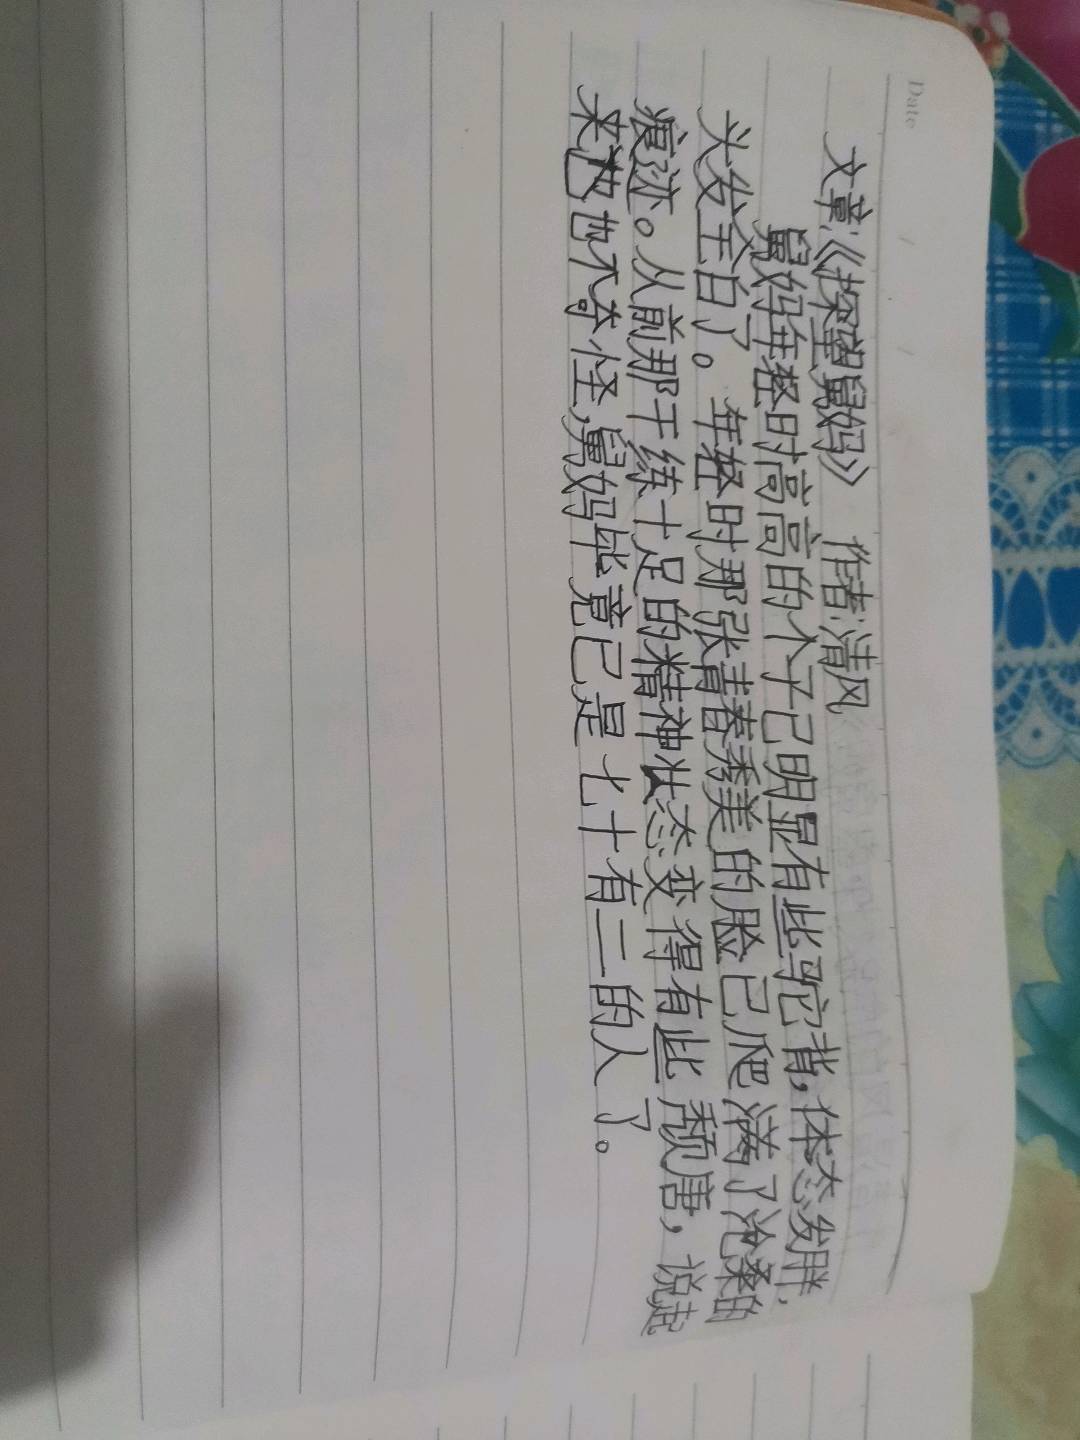 Date
文章:《探望舅妈》 作者:清风
舅妈年轻时高高的个子已明显有些驼背,体态发胖,
头发全白了。年轻时那张青春秀美的脸已爬满了沧桑的
痕迹。从前那干练十足的精神状态变得有些颓唐,说起
来也不奇怪,舅妈毕竟已是七十有二的人了。